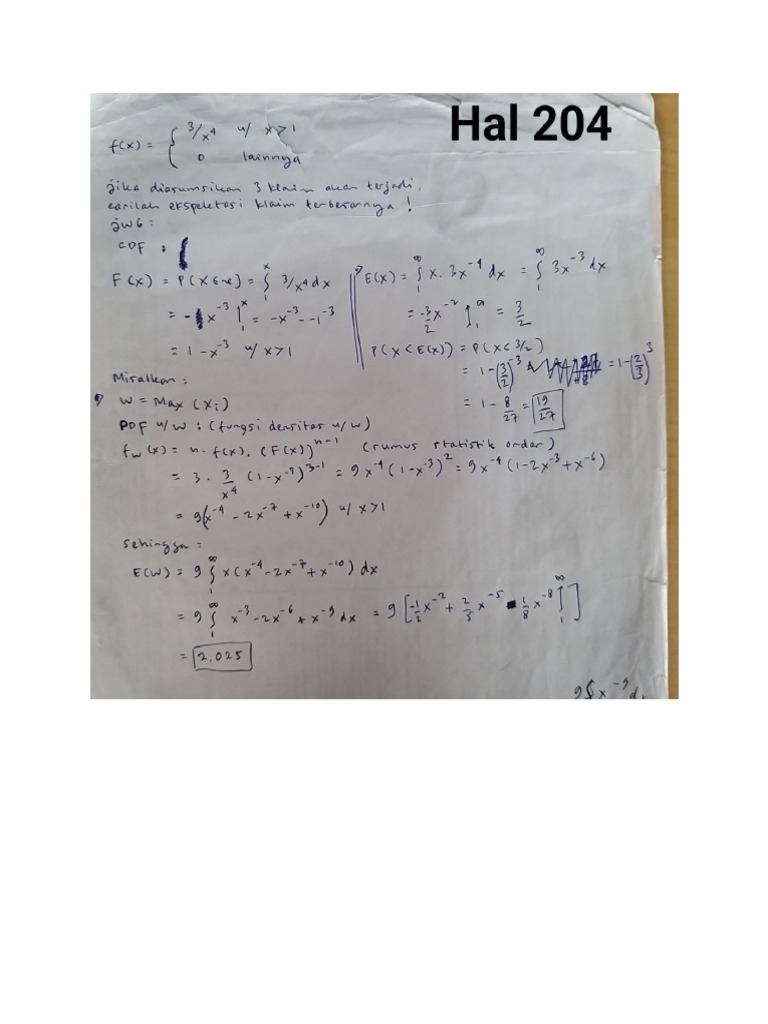 Hal 204
f(x) = { 3/x⁴ u/ x > 1
0 lainnya
jika diasumsikan 3 klaim akan terjadi,
carilah ekspektasi klaim terbesarnya !
jwb :
CDF :
F(x) = P(X ≤ x) = ∫₁ˣ 3/x⁴ dx
= - x⁻³ ]₁ˣ = -x⁻³ - -1⁻³
= 1 - x⁻³ u/ x > 1
E(x) = ∫₁^∞ x. 3x⁻⁴ dx = ∫₁^∞ 3x⁻³ dx
= -3/2 x⁻² ]₁^∞ = 3/2
P(X < E(x)) = P(X < 3/2)
= 1 - (3/2)⁻³ = 1 - (2/3)³
= 1 - 8/27 = 19/27
Misalkan :
W = Max (Xi)
PDF u/ W : (fungsi densitas u/ w)
fw(x) = n. f(x). (F(x))ⁿ⁻¹ (rumus statistik ordar)
= 3 . 3/x⁴ (1 - x⁻³)³⁻¹ = 9x⁻⁴ (1 - x⁻³)² = 9x⁻⁴ (1 - 2x⁻³ + x⁻⁶)
= 9(x⁻⁴ - 2x⁻⁷ + x⁻¹⁰) u/ x > 1
Sehingga :
E(W) = 9 ∫₁^∞ x(x⁻⁴ - 2x⁻⁷ + x⁻¹⁰) dx
= 9 ∫₁^∞ x⁻³ - 2x⁻⁶ + x⁻⁹ dx = 9 [-1/2 x⁻² + 2/5 x⁻⁵ - 1/8 x⁻⁸ ]₁^∞ ]
= 2,025
9∫x⁻⁹ d